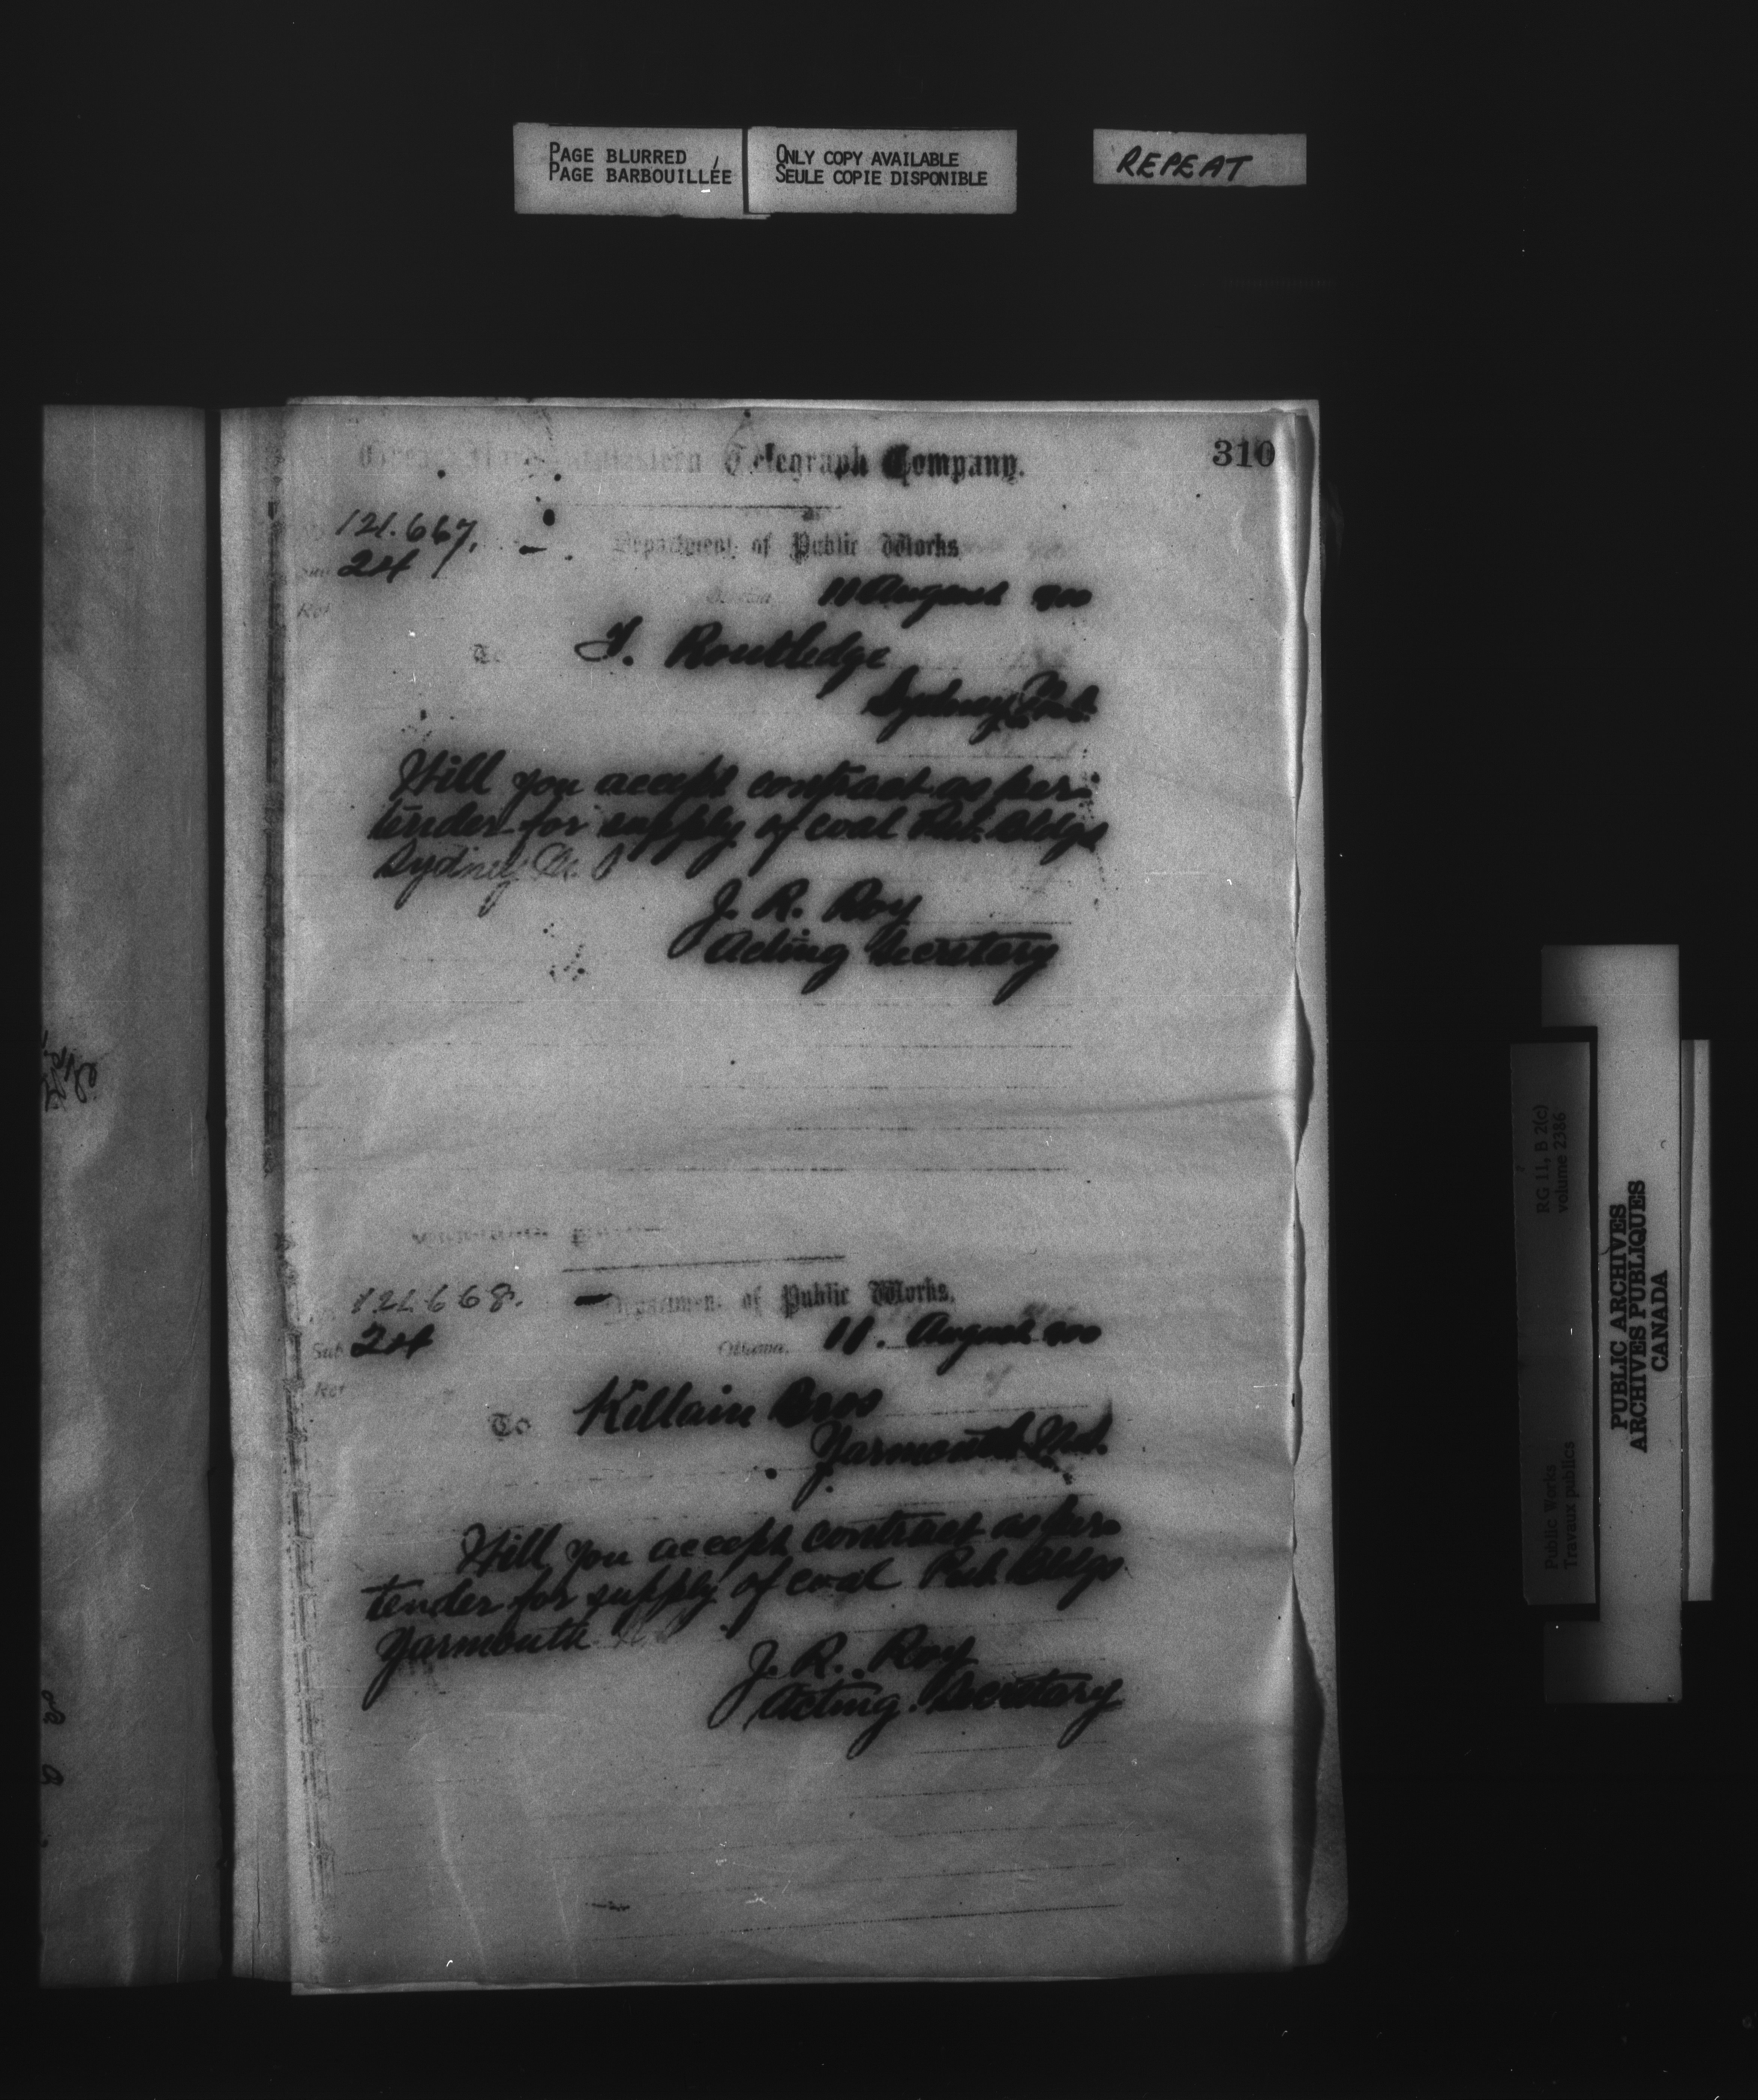 PAGE BLURRED
PAGE BARBOUILLÉE
ONLY COPY AVAILABLE
SEULE COPIE DISPONIBLE
REPEAT
310
Great North Western Telegraph Company.
121.667.
24
Department of Public Works
Ref
Ottawa 11 August 900
To T. Routledge
Sydney N.S.
Will you accept contract as per
tender for supply of coal Pub. Bldgs
Sydney
J. R. Roy
Acting Secretary
121668.
Department of Public Works.
Sub 24
Ottawa, 11. August 900
Ref
To Killain Bros
Yarmouth N.S.
Will you accept contract as per
tender for supply of coal Pub. Bldgs
Yarmouth
J. R. Roy
Acting Secretary
RG 11, B 2(c)
volume 2386
Public Works
Travaux publics
PUBLIC ARCHIVES
ARCHIVES PUBLIQUES
CANADA